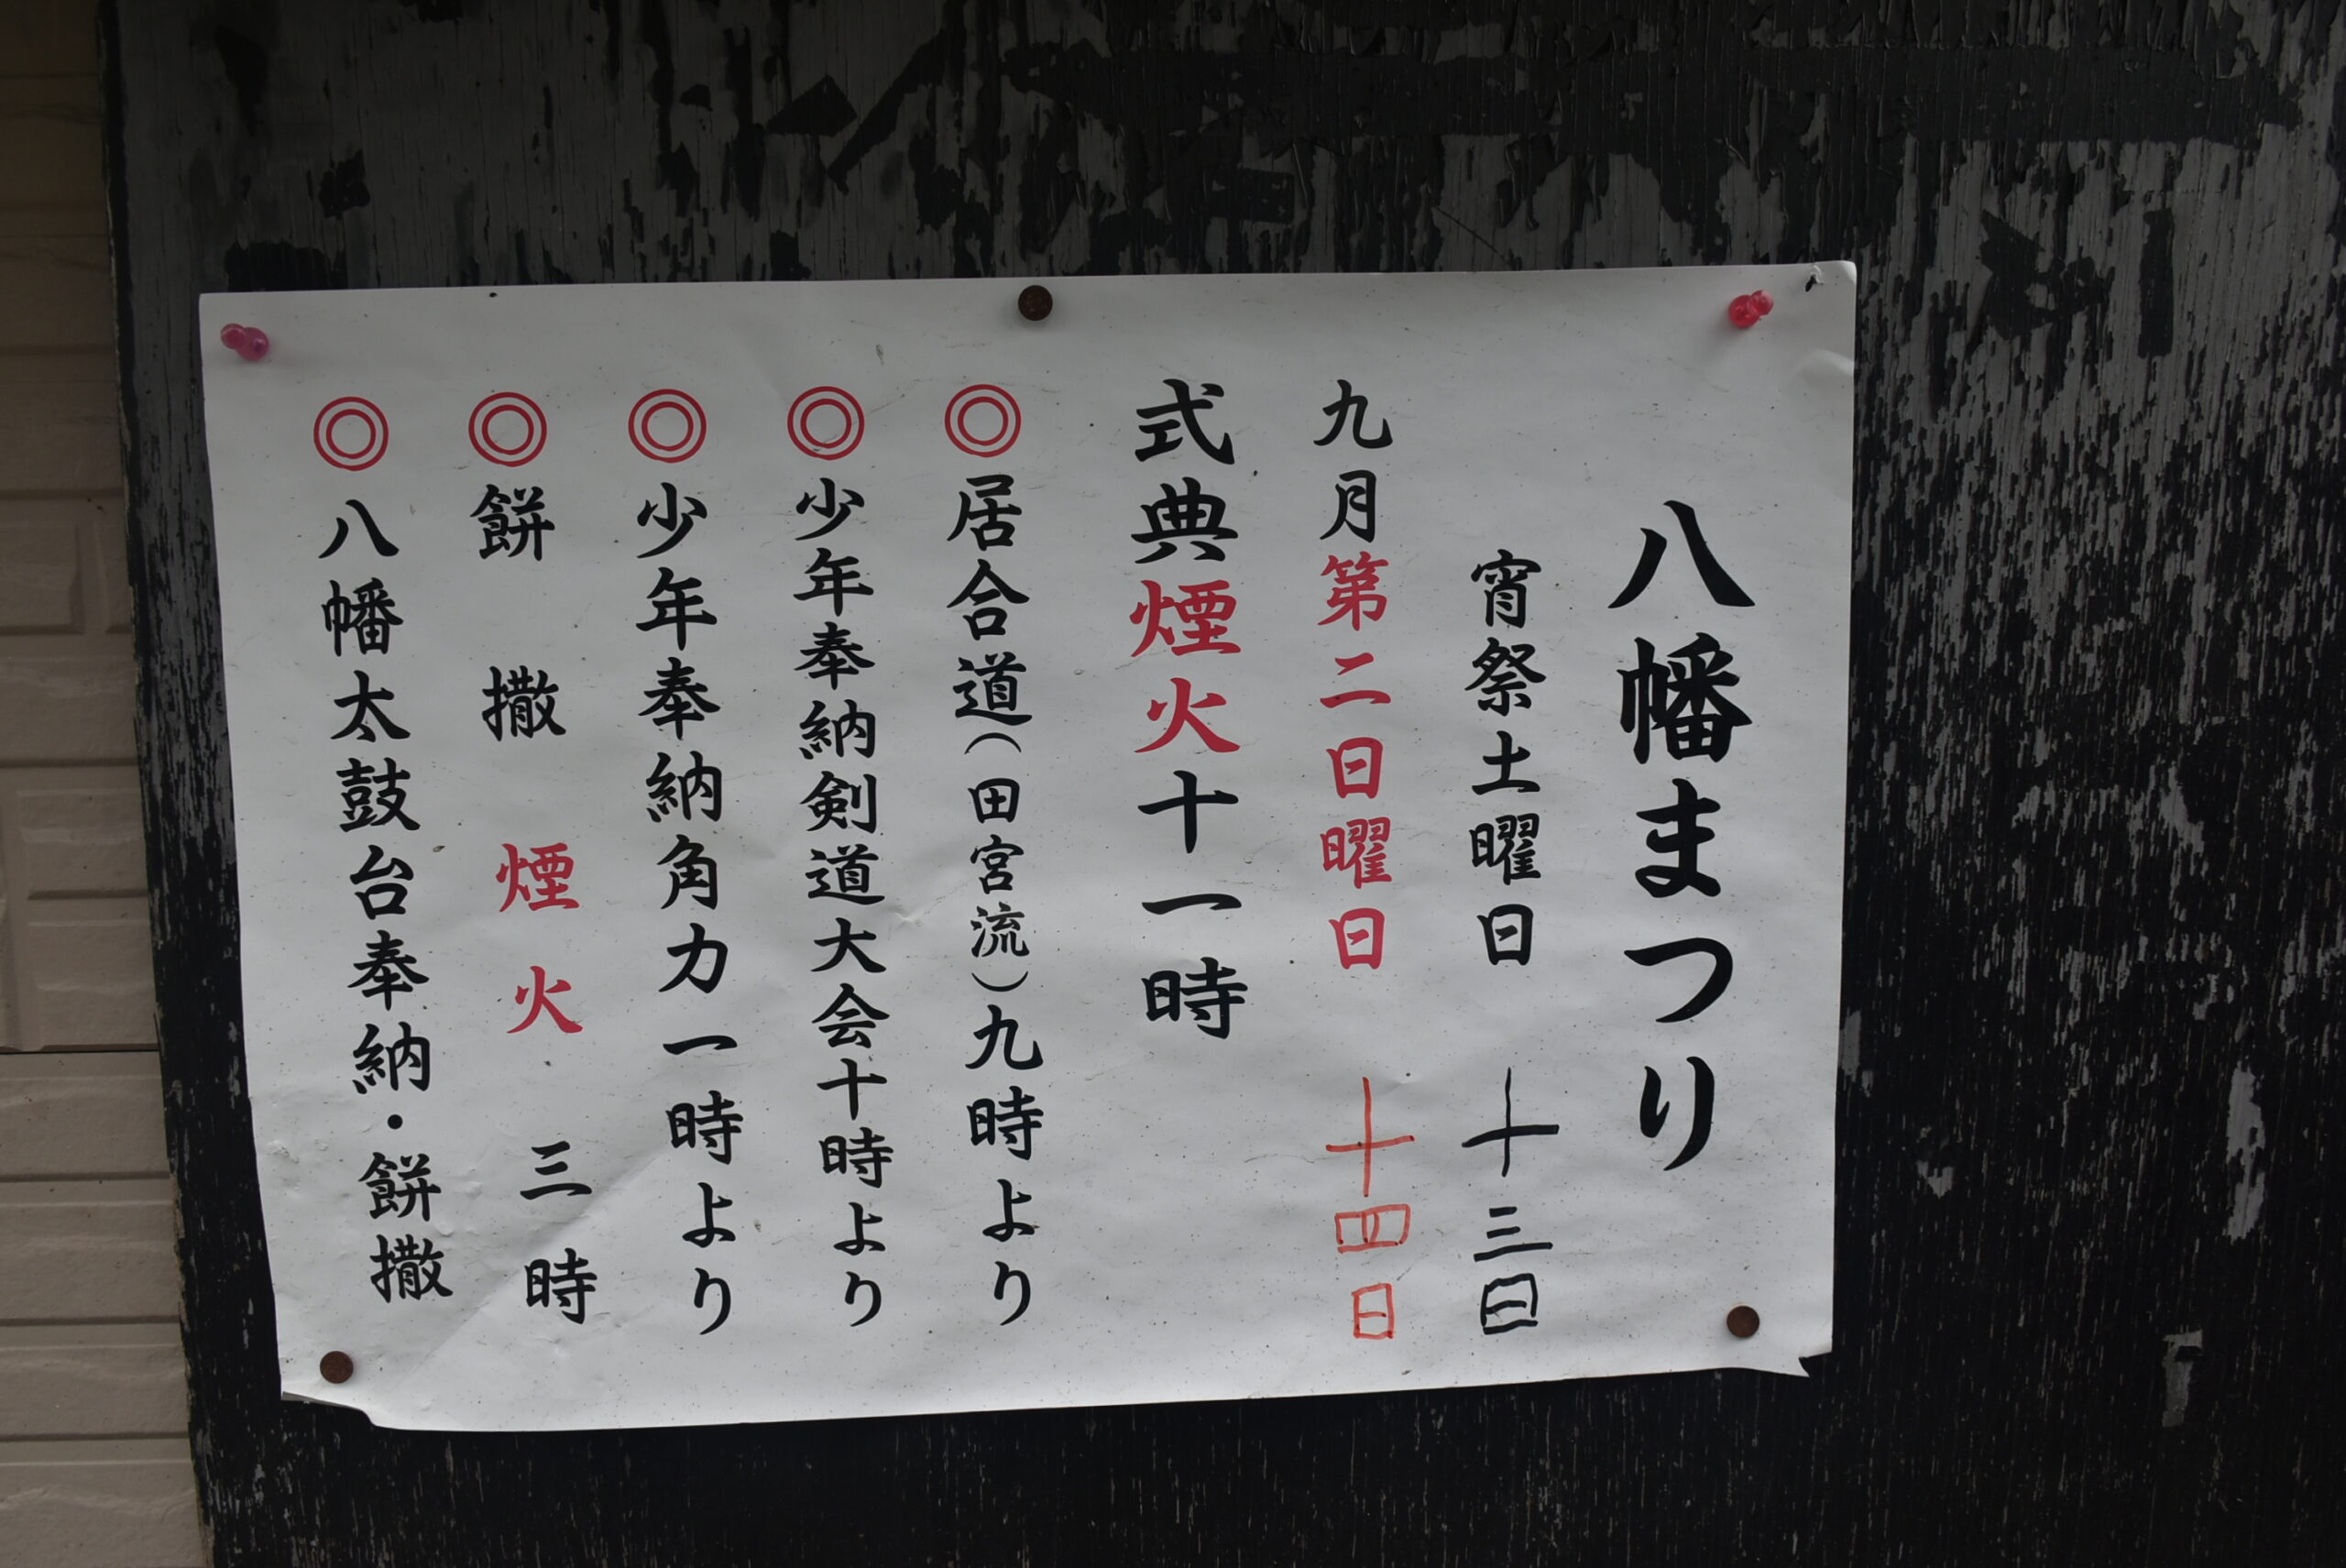 八幡まつり
宵祭土曜日 十三日
九月第二日曜日 十四日
式典煙火十一時
◎居合道(田宮流)九時より
◎少年奉納剣道大会十時より
◎少年奉納角力一時より
◎餅撒 煙火 三時
◎八幡太鼓台奉納・餅撒